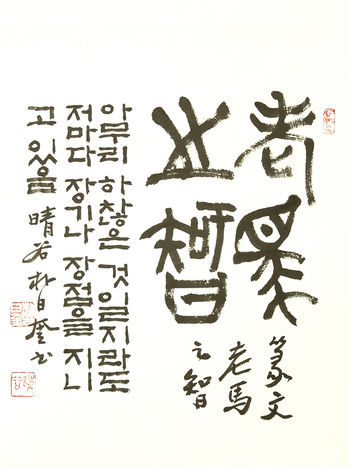 老馬
之智
篆文
老馬
之智
아무리 하찮은 것 일지라도
저마다 장기나 장점을 지니
고 있음 晴谷 朴日奎 書